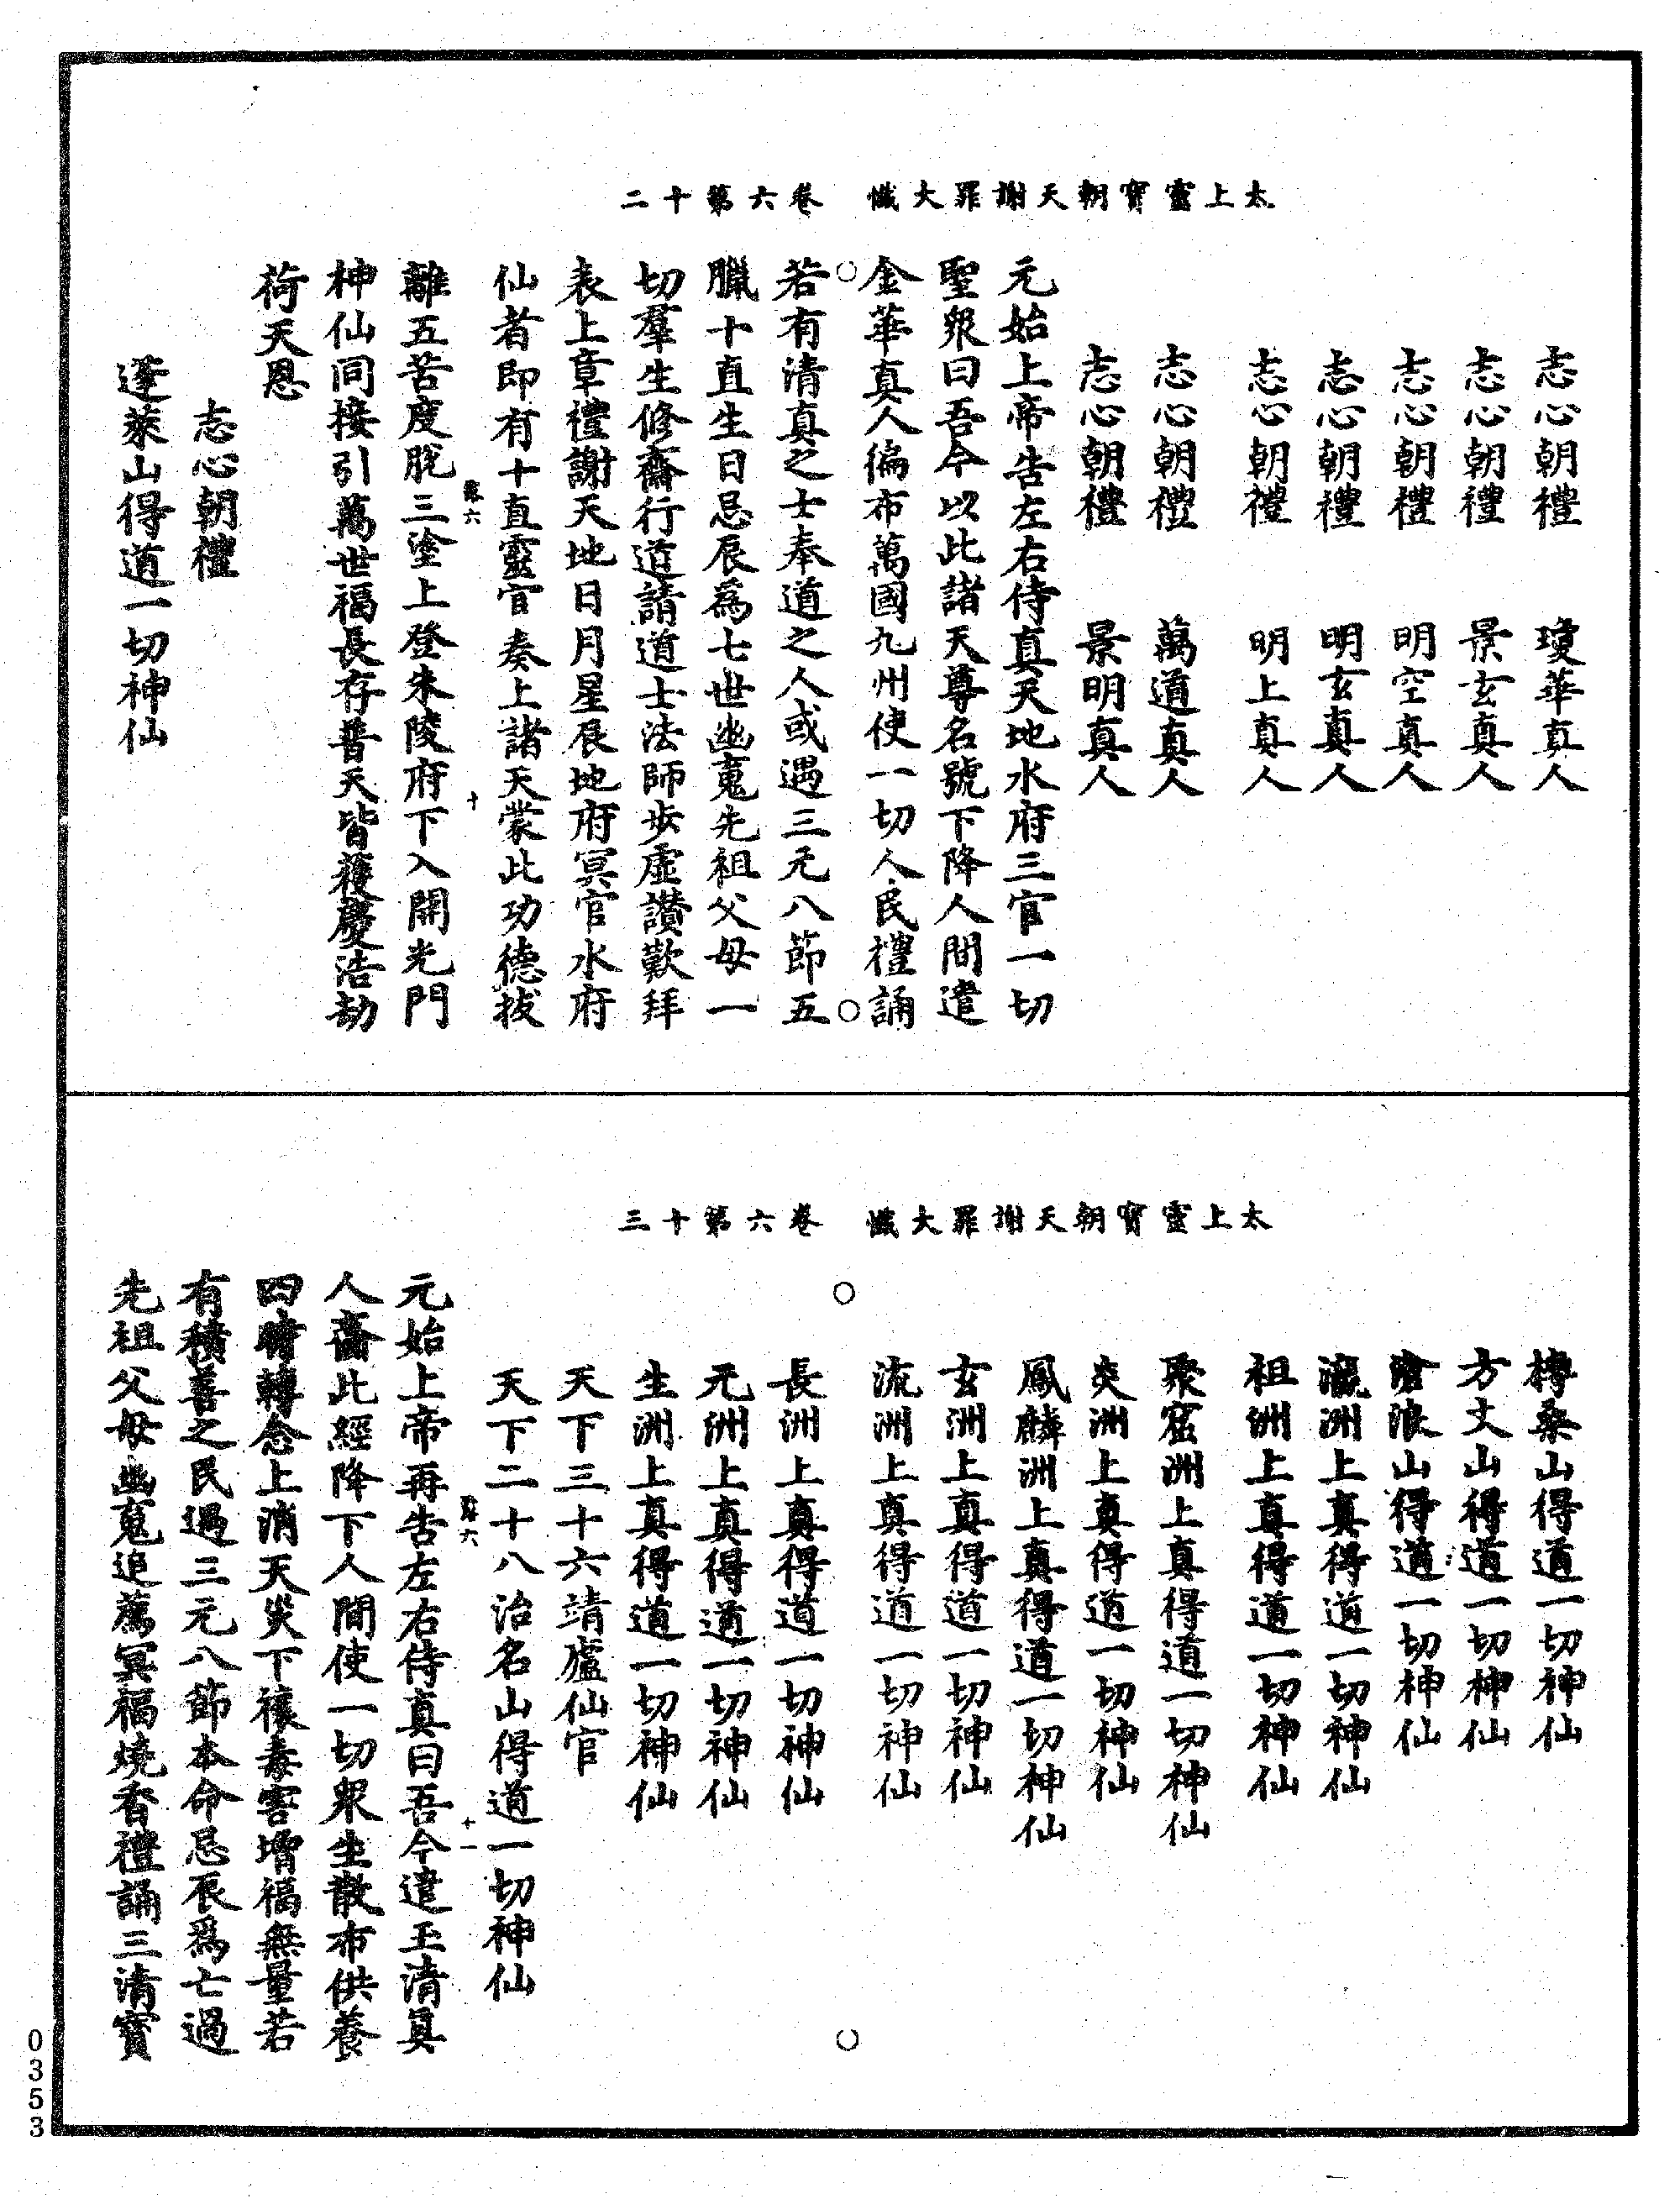 太上靈寶朝天謝罪大懺　卷六第十二
志心朝禮　瓊華真人
志心朝禮　景玄真人
志心朝禮　明空真人
志心朝禮　明玄真人
志心朝禮　明上真人
志心朝禮　萬道真人
志心朝禮　景明真人
元始上帝告左右侍真天地水府三官一切
聖衆曰吾今以此諸天尊名號下降人間遣
金華真人徧布萬國九州使一切人民禮誦
若有清真之士奉道之人或遇三元八節五
臘十直生日忌辰爲七世幽䰟先祖父母一
切羣生修齋行道請道士法師步虛讚歎拜
表上章禮謝天地日月星辰地府冥官水府
仙者即有十直靈官奏上諸天蒙此功德拔
六　十
離五苦度脫三塗上登朱陵府下入開光門
神仙同接引萬世福長存普天皆獲慶浩劫
荷天恩
志心朝禮
蓬萊山得道一切神仙
太上靈寶朝天謝罪大懺　卷六第十三
榑桑山得道一切神仙
方丈山得道一切神仙
滄浪山得道一切神仙
瀛洲上真得道一切神仙
祖洲上真得道一切神仙
聚窟洲上真得道一切神仙
炎洲上真得道一切神仙
鳳麟洲上真得道一切神仙
玄洲上真得道一切神仙
流洲上真得道一切神仙
長洲上真得道一切神仙
元洲上真得道一切神仙
生洲上真得道一切神仙
天下三十六靖廬仙官
天下二十八治名山得道一切神仙
六　十一
元始上帝再告左右侍真曰吾今遣玉清真
人齎此經降下人間使一切衆生散布供養
四時轉念上消天災下禳毒害增福無量若
有積善之民遇三元八節本命忌辰爲亡過
先祖父母幽䰟追薦冥福燒香禮誦三清寶
0353